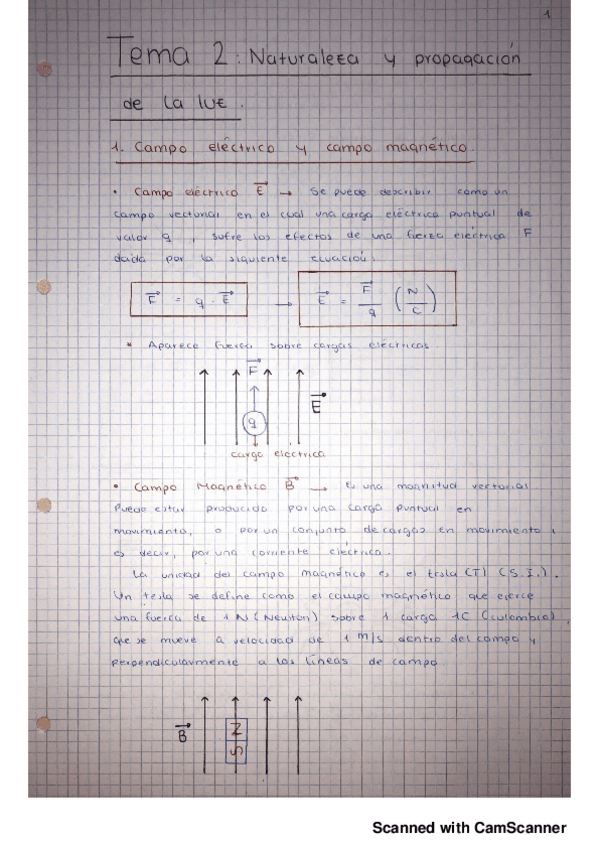 1
Tema 2: Naturaleza y propagación
de la luz.
1. Campo eléctrico y campo magnético.
• Campo eléctrico E → Se puede describir como un
campo vectorial en el cual una carga eléctrica puntual de
valor q, sufre los efectos de una fuerza eléctrica F
dada por la siguiente ecuación:
F = q · E → E = F/q (N/C)
• Aparece fuerza sobre cargas eléctricas.
F
E
q
carga electrica
• Campo Magnético B → Es una magnitud vectorial.
Puede estar producido por una carga puntual en
movimiento, o por un conjunto de cargas en movimiento,
es decir, por una corriente eléctrica.
La unidad del campo magnético es el tesla (T) (S.I.).
Un tesla se define como el campo magnético que ejerce
una fuerza de 1 N (Newton) sobre 1 carga 1C (culombio),
que se mueve a velocidad de 1 m/s dentro del campo y
perpendicularmente a las líneas de campo
B
N
S
Scanned with CamScanner